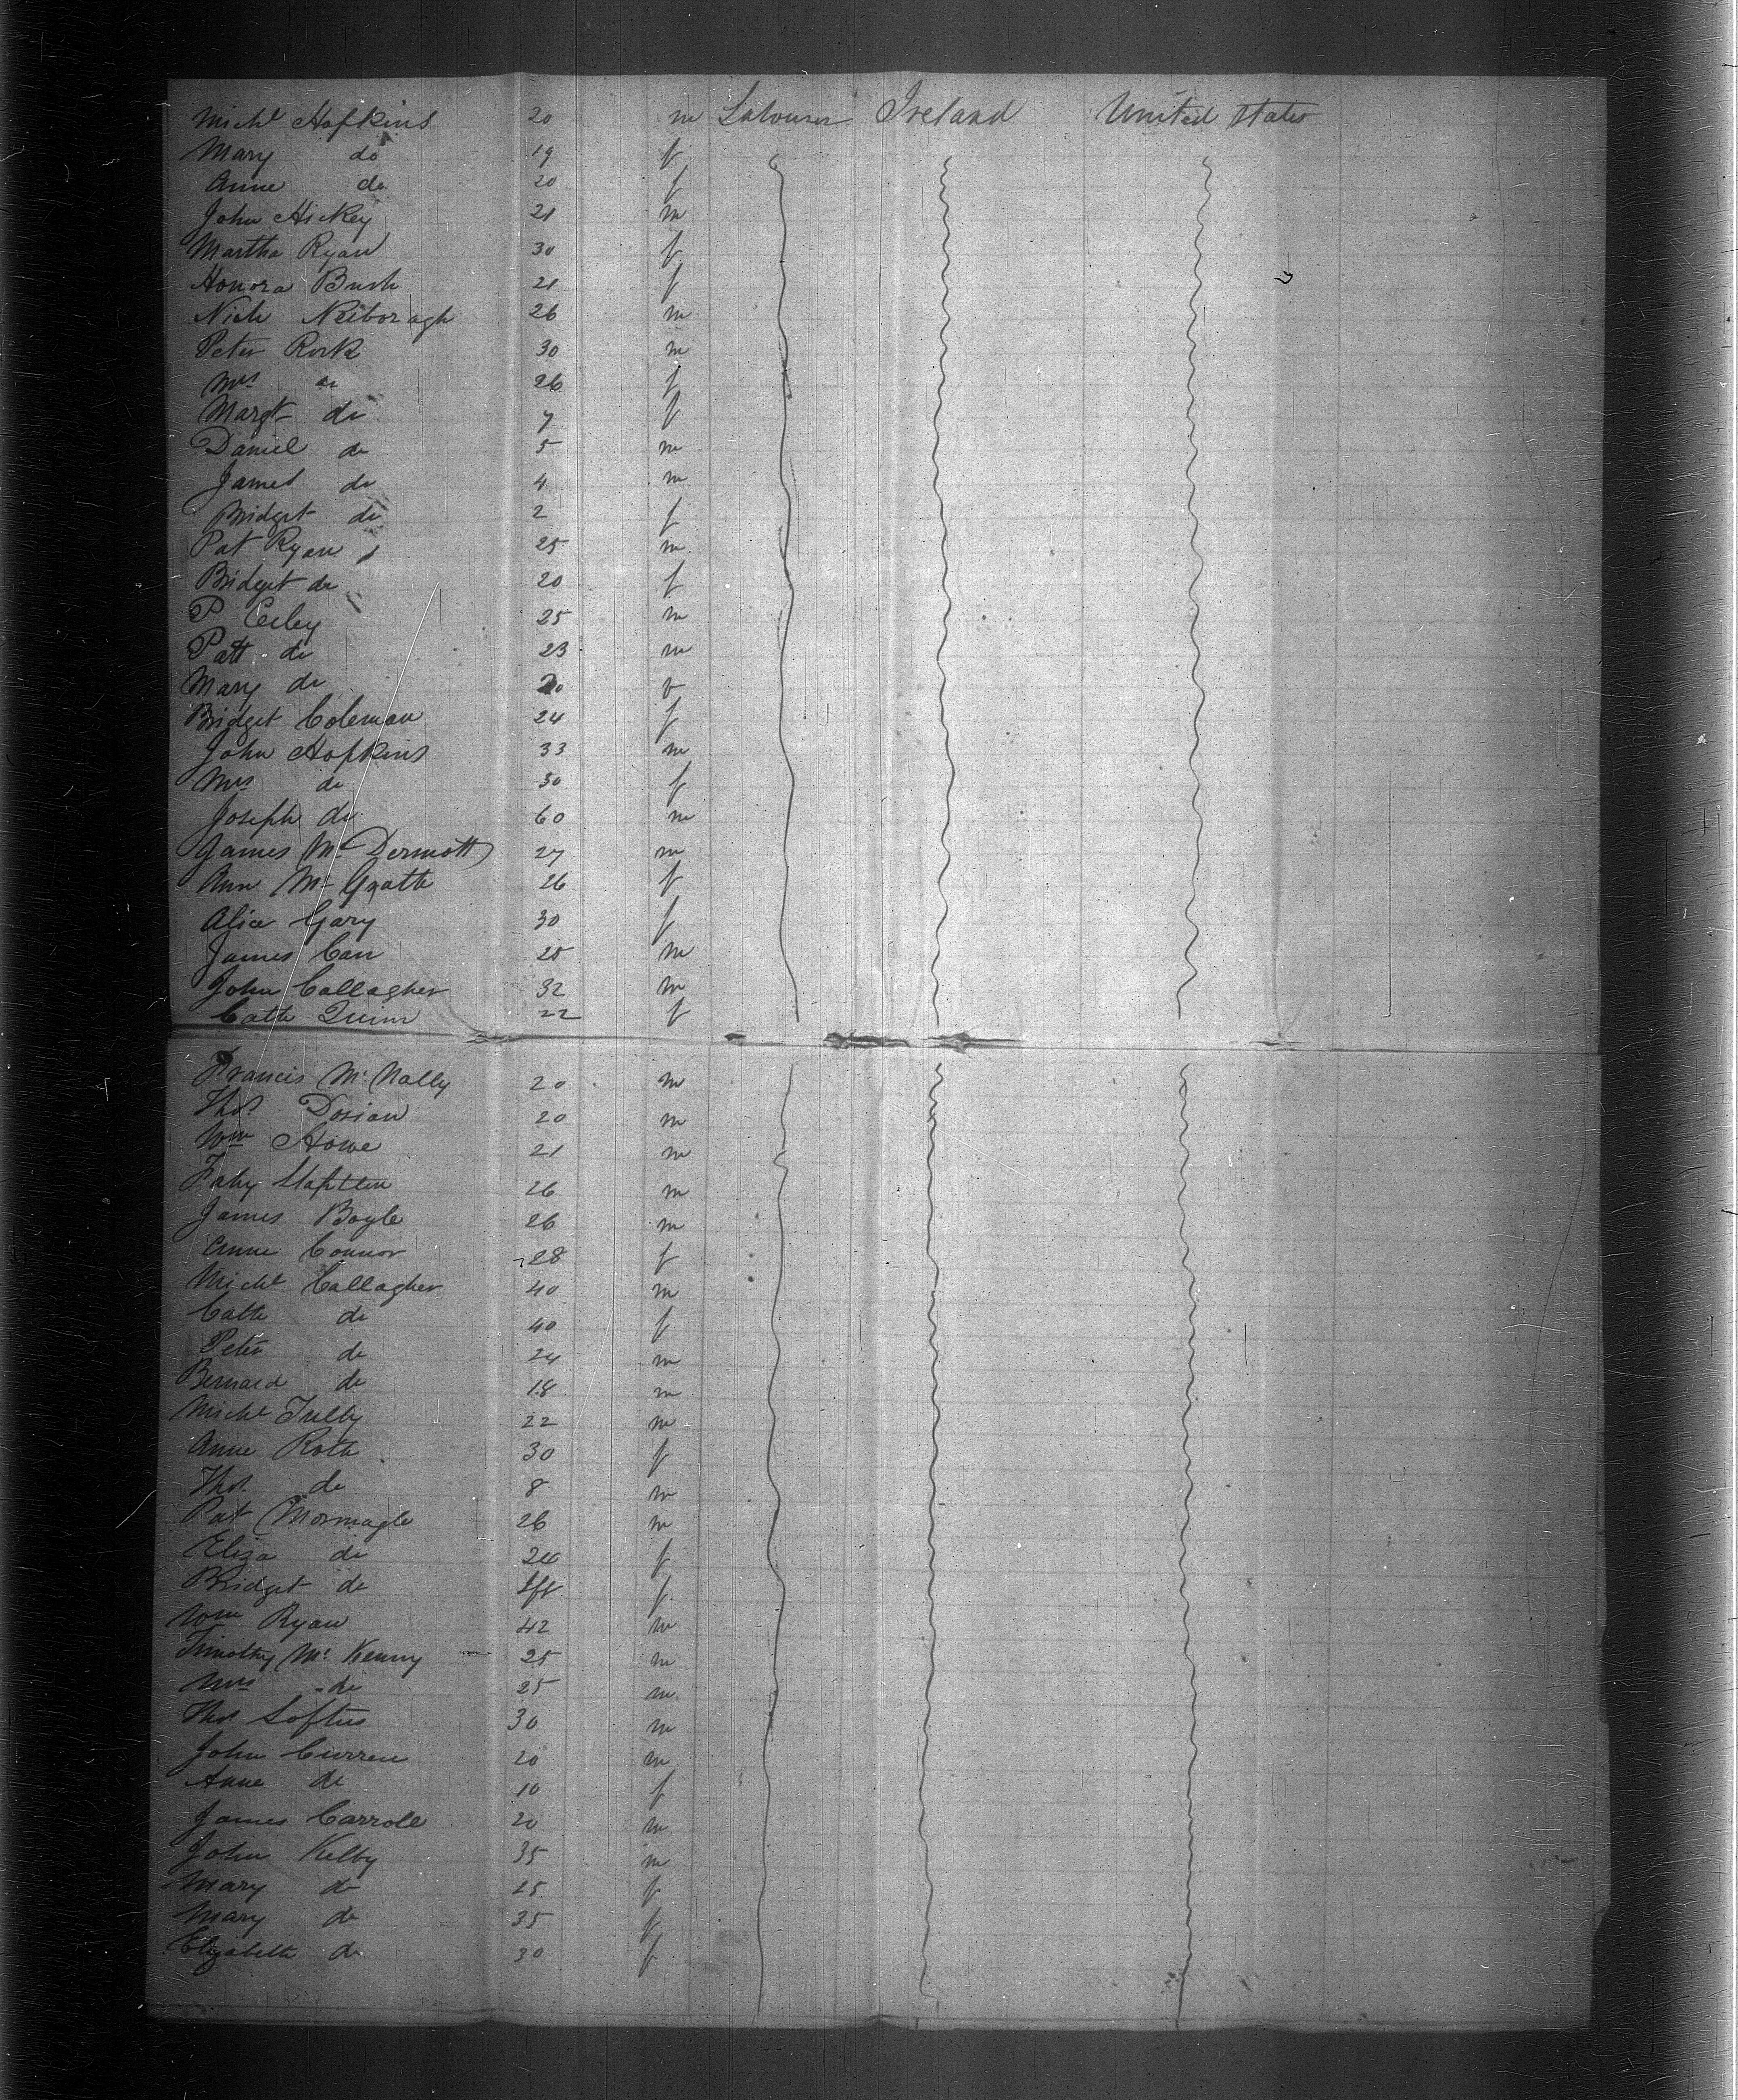 Michl Hopkins 20 m Labourer Ireland United States
Mary do 19 f
Anne do 20 f
John Hickey 21 m
Martha Ryan 30 f
Honora Bush 21 f
Nich 26 m
Peter Rork 30 m
Mrs do 26 f
Margt do 7 f
Daniel do 5 m
James do 4 m
Bridget do 2 f
Pat Ryan 25 m
Bridget do 20 f
P 25 m
Patt do 23 m
Mary do 20 f
Bridget Coleman 24 f
John Hopkins 33 m
Mrs do 30 f
Joseph do 60 m
James McDermott 27 m
Ann McGrath 26 f
Alice Gary 30 f
James Carr 25 m
John Callagher 32 m
Cath Quinn 22 f
Francis McNally 20 m
Thos 20 m
Wm Howe 21 m
26 m
James Boyle 26 m
Anne Connor 28 f
Michl Callagher 40 m
Cath do 40 f
Peter do 24 m
Bernard do 18 m
Michl Tully 22 m
Anne Roth 30 f
Thos do 8 m
Pat 26 m
Eliza do 24 f
Bridget do Ift f
Wm Ryan 42 m
Timothy McKenny 25 m
Mrs do 25 m
Thos Loftus 30 m
John Curren 20 m
Anne do 10 f
James Carroll 20 m
John Kelby 35 m
Mary do 25 f
Mary do 35 f
Elizabeth do 30 f